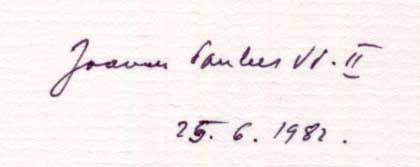 Joannes Paulus PP. II
25. 6. 1982.